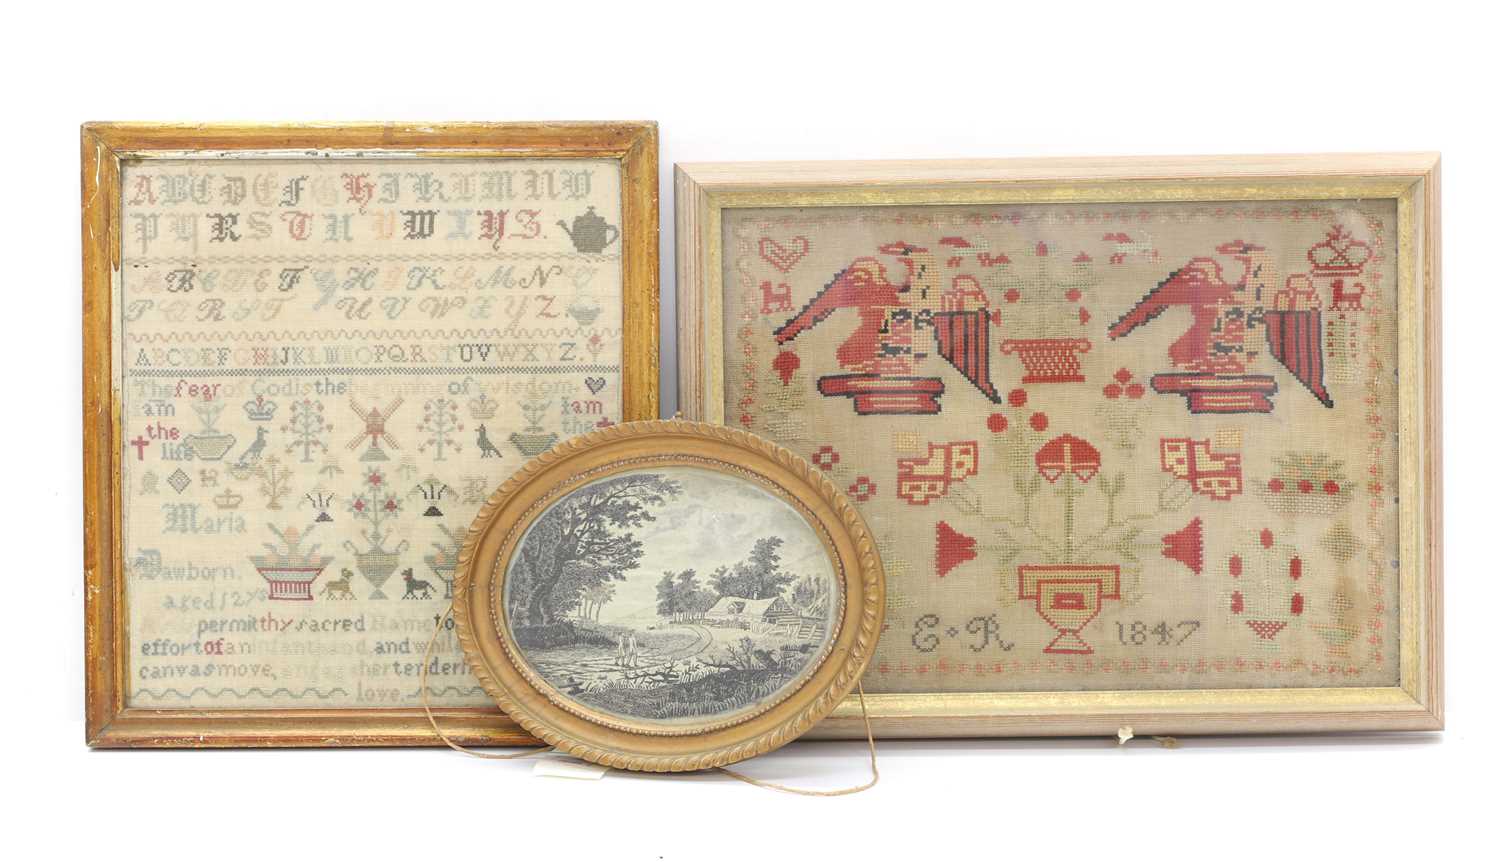 A B C D E F G H I K L M N O
P Q R S T U V W X Y Z.
A B C D E F G H I K L M N O
P Q R S T U V W X Y Z.
ABCDEFGHIJKLMNOPQRSTUVWXYZ.
The fear of God is the beginning of wisdom.
I am I am
the the
life
R
Maria
Dawborn.
aged 12 ys
permit thy sacred Name to
effort of an infant hand, and while
canvas move, engage her tender
love.
E R 1847